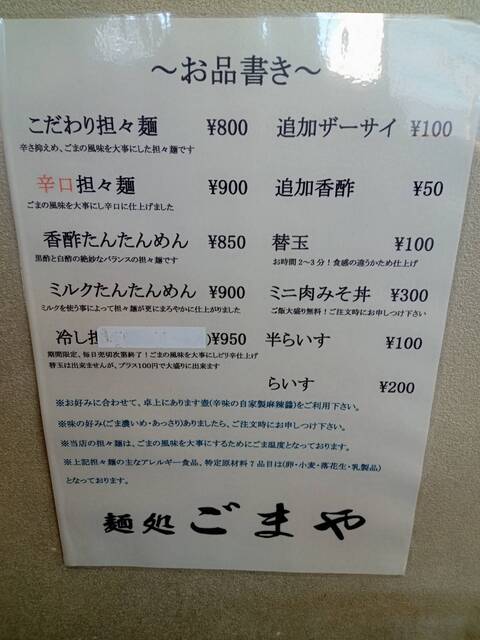 ～お品書き～
こだわり担々麺 ¥800
辛さ抑えめ、ごまの風味を大事にした担々麺です
辛口担々麺 ¥900
ごまの風味を大事にし辛口に仕上げました
香酢たんたんめん ¥850
黒酢と白酢の絶妙なバランスの担々麺です
ミルクたんたんめん ¥900
ミルクを使う事によって担々麺が更にまろやかに仕上がりました
冷し担 )¥950
期間限定、毎日売切次第終了！ごまの風味を大事にしピリ辛仕上げ
替玉は出来ませんが、プラス100円で大盛りに出来ます
追加ザーサイ ¥100
追加香酢 ¥50
替玉 ¥100
お時間2～3分！食感の違うかため仕上げ
ミニ肉みそ丼 ¥300
ご飯大盛り無料！ご注文時にお申しつけ下さい
半らいす ¥100
らいす ¥200
※お好みに合わせて、卓上にあります壺(辛味の自家製麻辣醤)をご利用下さい。
※味の好み(ごま濃いめ・あっさり)ありましたら、ご注文時にお申しつけ下さい。
※当店の担々麺は、ごまの風味を大事にするためにごま温度となっております。
※上記担々麺の主なアレルギー食品、特定原材料7品目は(卵・小麦・落花生・乳製品)
となっております。
麺処 ごまや